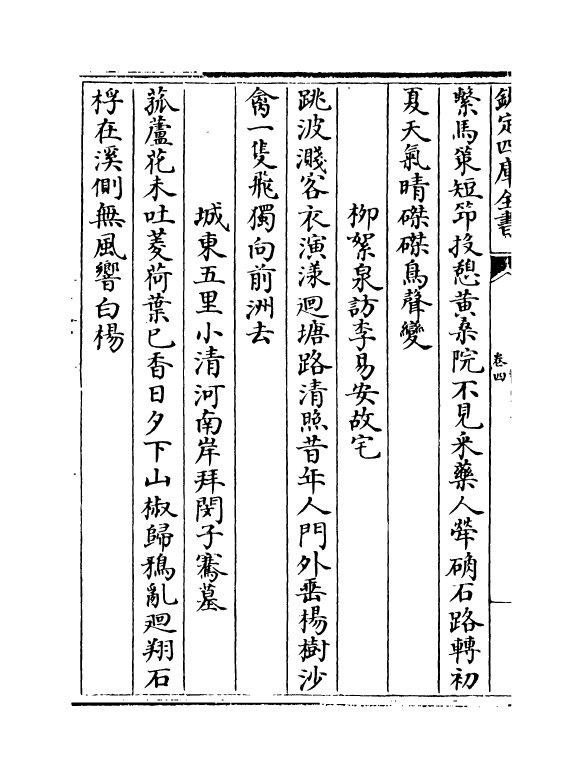 欽定四庫全書
卷四
繫馬策短笻投憩黄桑院不見采藥人犖确石路轉初
夏天氣晴磔磔鳥聲變
柳絮泉訪李易安故宅
跳波濺客衣演漾迴塘路清照昔年人門外垂楊樹沙
禽一隻飛獨向前洲去
城東五里小清河南岸拜閔子騫墓
菰蘆花未吐菱荷葉已香日夕下山椒歸鴉亂迴翔石
桴在溪側無風響白楊